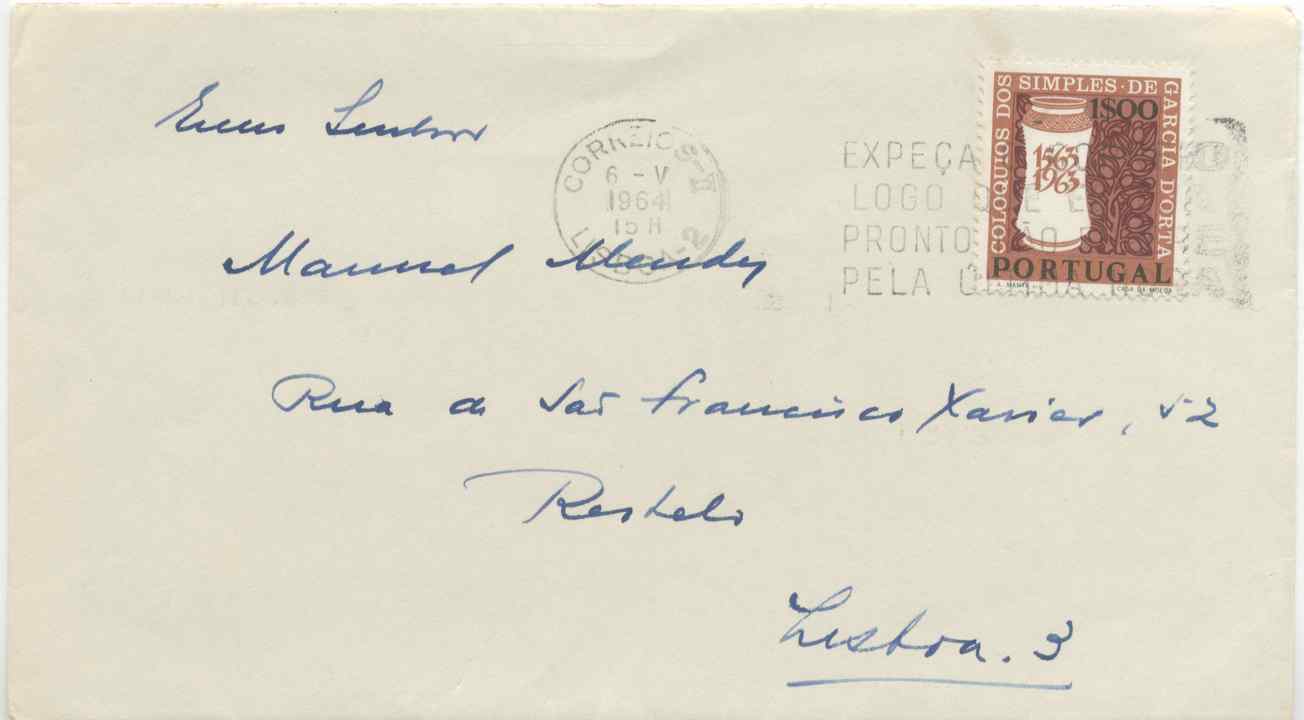 COLOQUIOS DOS SIMPLES·DE GARCIA D'ORTA
1$00
1563
1963
PORTUGAL
CASA DA MOEDA
CORREIOS
6 - V
1964
15 H
LISBOA-2
EXPEÇA
LOGO
PRONTO
PELA
Exmo Senhor
Manuel Mendes
Rua de São Francisco Xavier, 52
Restelo
Lisboa. 3